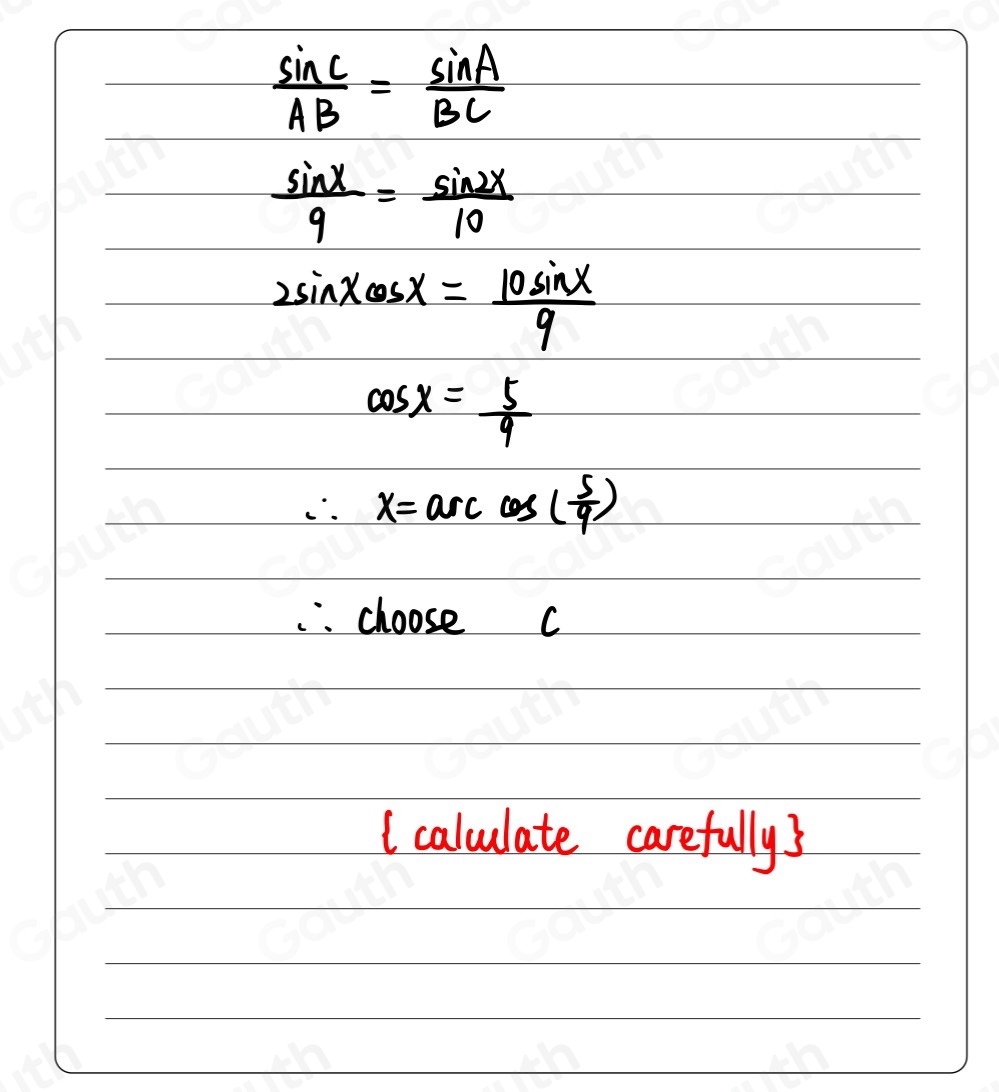 sin C / AB = sin A / BC
sinx / 9 = sin2x / 10
2sinxcosx = 10sinx / 9
cosx = 5 / 9
∴ x = arc cos (5/9)
∴ choose C
{ calculate carefully }
Gauth